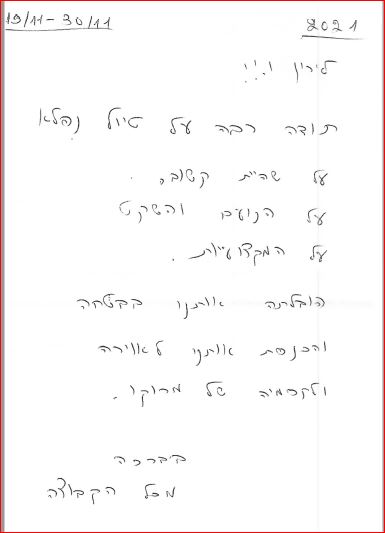 19/11-30/11 2021
לירין
תודה רבה על טיול נפלא
על שהיית קשוב,
על הנועם והשקט
על המקצועיות.
הובלתה אותנו בבטחה
והכנסת אותנו לאווירה
ולקסמיה של מרוקו.
בברכה
מכל הקבוצה